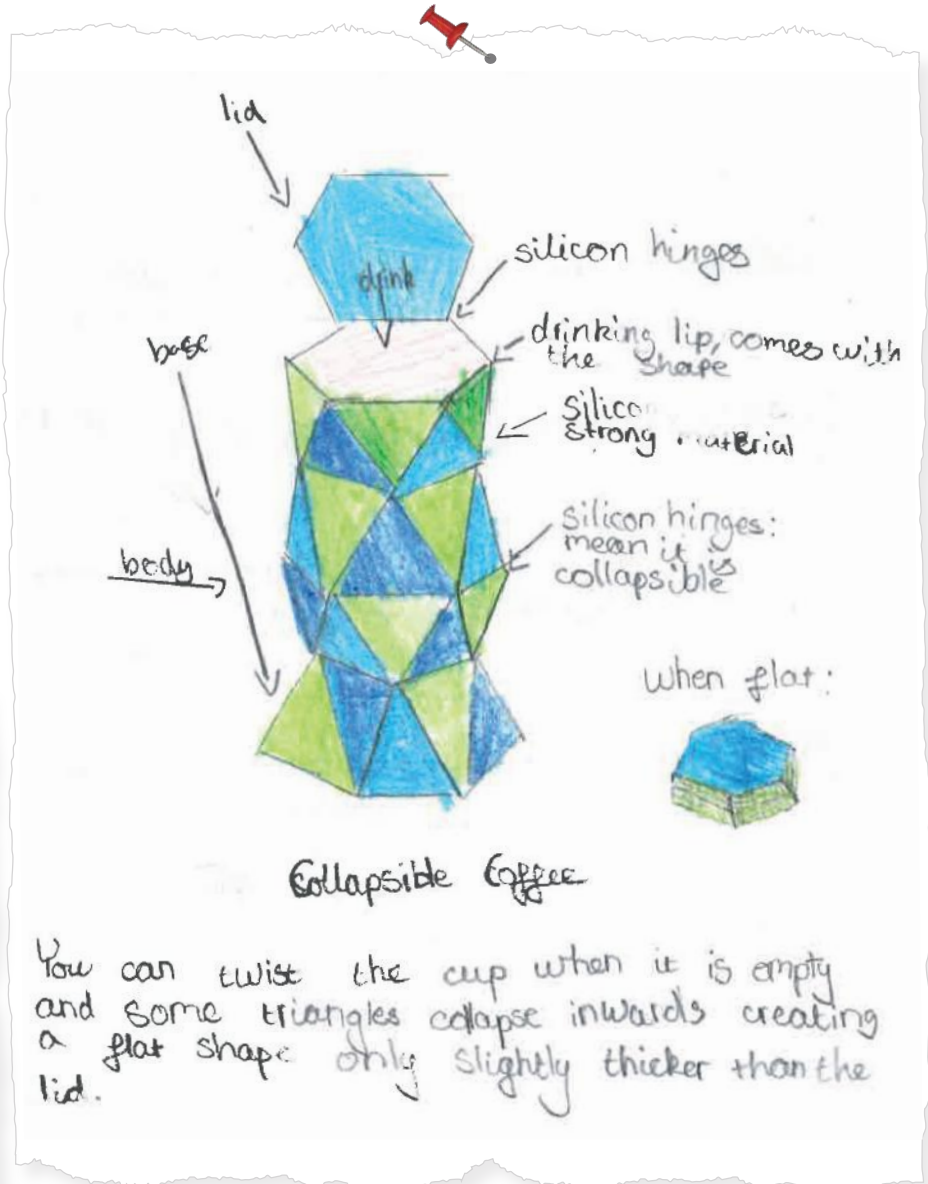 lid
drink
silicon hinges
base
drinking lip, comes with
the shape
silicon
strong material
silicon hinges:
mean it is
collapsible
body
when flat:
Collapsible Coffee
You can twist the cup when it is empty
and some triangles collapse inwards creating
a flat shape only slightly thicker than the
lid.